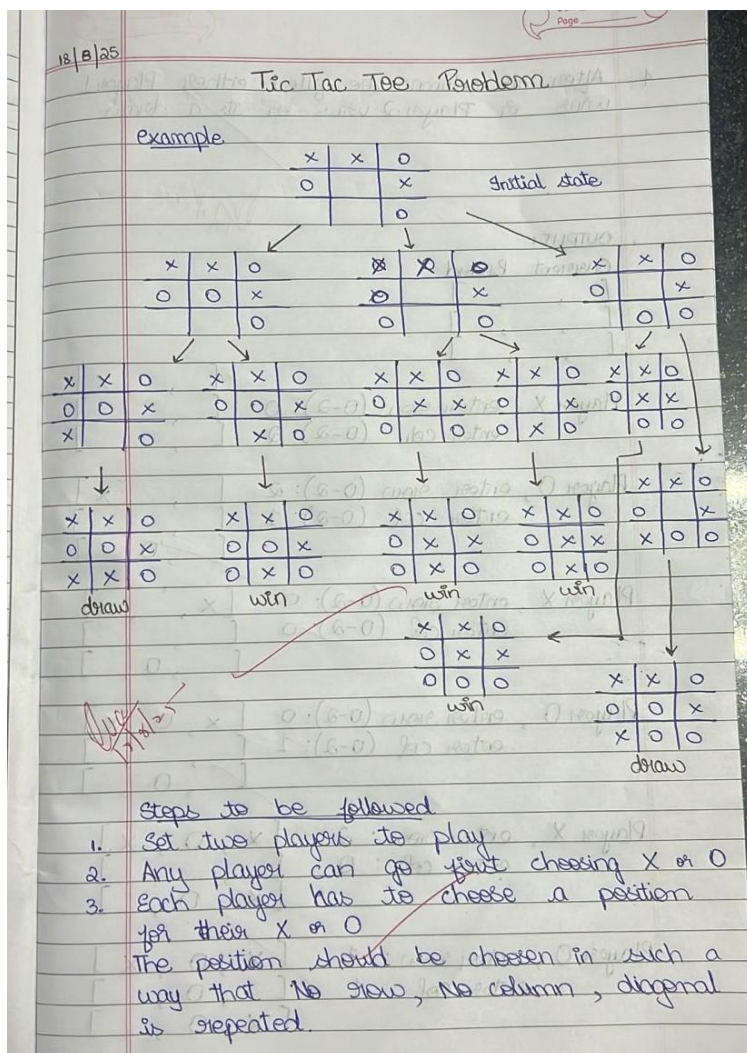 Page
18/8/25
Tic Tac Toe Problem
example
X X O
O X
O
Initial state
X X O X X O X X O
O O X O X O X
O O O O O
X X O X X O X X O X X O X X O
O O X O O X O X X O X O X X
X O X O O O O X O O O
X X O
O X
X O O
X X O X X O X X O X X O
O O X O O X O X X O X X
X X O O X O O X O O X O
draw win win win
X X O
O X X
O O O
win
X X O
O O X
X O O
draw
Steps to be followed
1. Set two players to play
2. Any player can go first choosing X or O
3. Each player has to choose a position
for their X or O
The position should be choosen in such a
way that No row, No column, diagonal
is repeated.